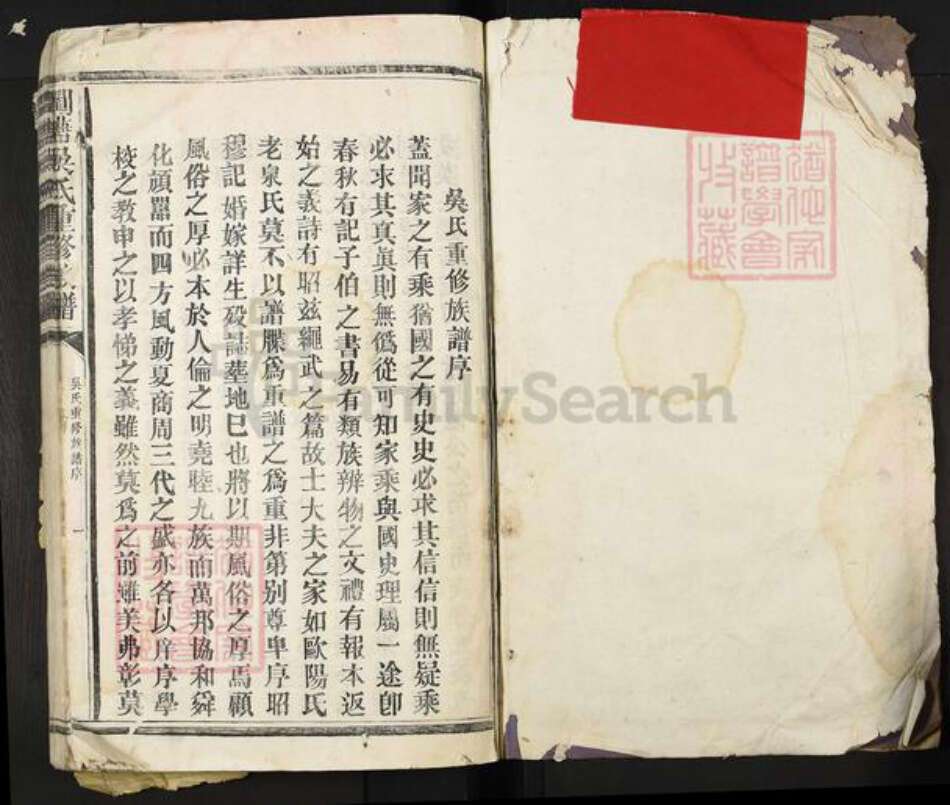 吳氏重修族譜序
蓋聞家之有乘猶國之有史史必求其信信則無疑乘
必求其真眞則無僞從可知家乘與國史理屬一途卽
春秋有記子伯之書易有類族辨物之文禮有報本返
始之義詩有昭玆繩武之篇故士大夫之家如歐陽氏
老泉氏莫不以譜牒爲重譜之爲重非第别尊卑序昭
穆記婚嫁詳生殁誌塋地巳也將以期風俗之厚焉顧
風俗之厚必本於人倫之明堯睦九族而萬邦協和舜
化頑嚚而四方風動夏商周三代之盛亦各以庠序學
校之教申之以孝悌之義雖然莫爲之前雖美弗彰莫
吳氏重修族譜
吳氏重修族譜序
一
猶他家譜學會收藏
FamilySearch